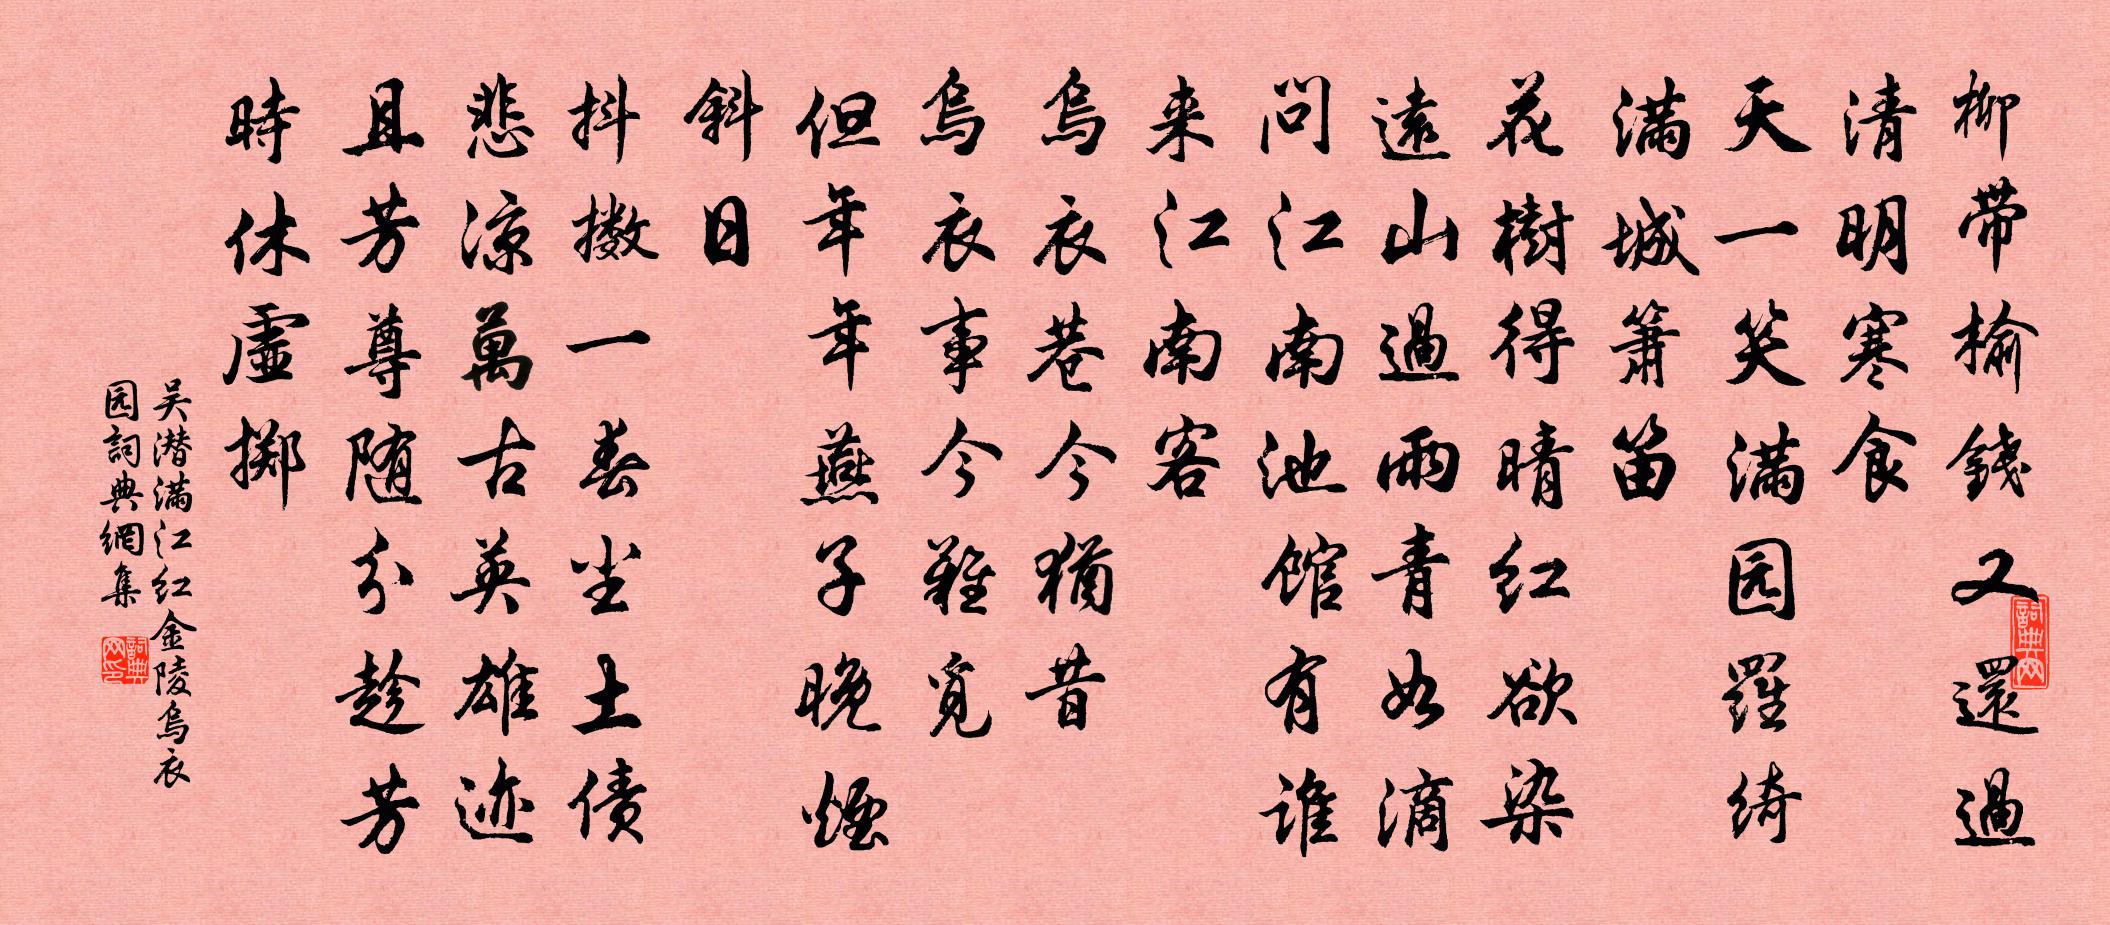 柳带榆錢又還過
清明寒食
天一笑满园羅绮
满城箫笛
花樹得晴红欲染
遠山過雨青如滴
問江南池馆有谁
来江南客
烏衣巷今猶昔
烏衣事今難覓
但年年燕子晚煙
斜日
抖擻一春尘土债
悲凉萬古英雄迹
且芳尊随分趁芳
時休虚掷
吴潜满江红金陵烏衣
园詞典網集
詞典网
詞典网印